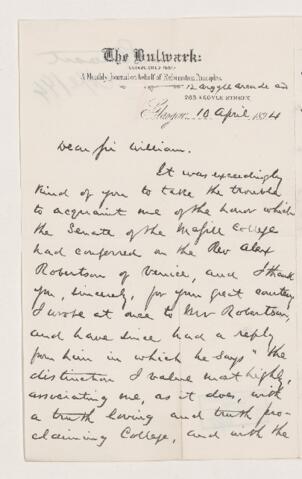 The Bulwark:
A Monthly Journal on behalf of Reformation Principles.
12 Argyle Arcade and
203 ARGYLE STREET,
Glasgow, 10 April 1894
Dear Sir William.
It was exceedingly
kind of you to take the trouble
to acquaint me of the honor which
the Senate of the McGill College
had conferred on the Rev Alex
Robertson of Venice, and I thank
you, sincerely, for your great courtesy
I wrote at once to Mr Robertson,
and have since had a reply
from him in which he says "the
distinction I value most highly,
associating me, as it does, with
a truth loving and truth pro-
claiming College, and with the